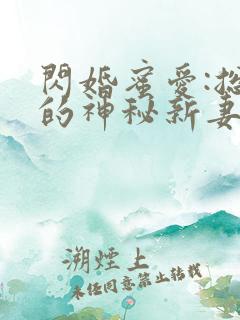 閃婚蜜愛:總
的神秘新妻
溯煙上
未任同意禁止转載